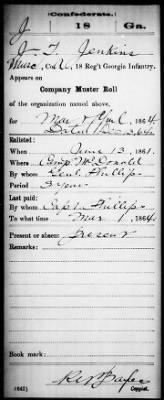 Confederate.
J 18 Ga.
J. T. Jenkins
Musc, Co. 18 Reg't Georgia Infantry.
Appears on
Company Muster Roll
of the organization named above,
for Mar & April, 1864.
Enlisted:
When June 13, 1861.
Where Camp McDonald
By whom Genl. Phillips
Period 3 years
Last paid:
By whom Capt. Phillips
To what time Mar 1, 1864.
Present or absent Present
Remarks:
Book mark:
(642) Copyist.